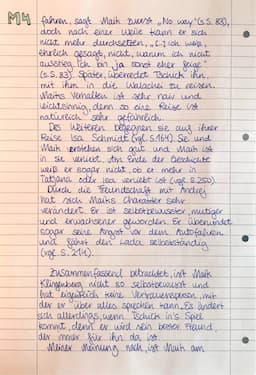 M4
fahren, sagt Maik zuerst „No way" (s.S. 83),
doch nach einer Weile kann er sich
nicht mehr durchsetzen, „[...] ich weiß,
ehrlich gesagt, nicht, warum ich nicht
ausstieg. Ich bin ja sonst eher feige"
(s.S. 83). Später überredet Tschick ihn,
mit ihm in die Walachei zu reisen.
Maiks Verhalten ist sehr naiv und
leichtsinnig, denn so eine Reise ist
natürlich sehr gefährlich.
Des Weiteren begegnen sie auf ihrer
Reise Isa Schmidt (vgl. S. 164). Sie und
Maik verstehen sich gut und Maik ist
in sie verliebt. Am Ende der Geschichte
weiß er sogar nicht, ob er mehr in
Tatjana oder Isa verliebt ist (vgl. S. 250).
Durch die Freundschaft mit Andrej
hat sich Maiks Charakter sehr
verändert. Er ist selbstbewusster, mutiger
und erwachsener geworden. Er überwindet
sogar seine Angst vor dem Autofahren
und fährt den Lada selbstständig
(vgl. S. 214).
Zusammenfassend betrachtet, ist Maik
Klingenberg nicht so selbstbewusst und
hat eigentlich keine Vertrauensperson, mit
der er über alles sprechen kann. Es ändert
sich allerdings, wenn Tschick in's Spiel
kommt, denn er wird sein bester Freund,
der immer für ihn da ist.
Meiner Meinung nach, ist Maik am